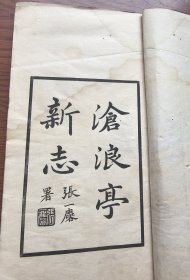 滄浪亭
新志
張一麐
署